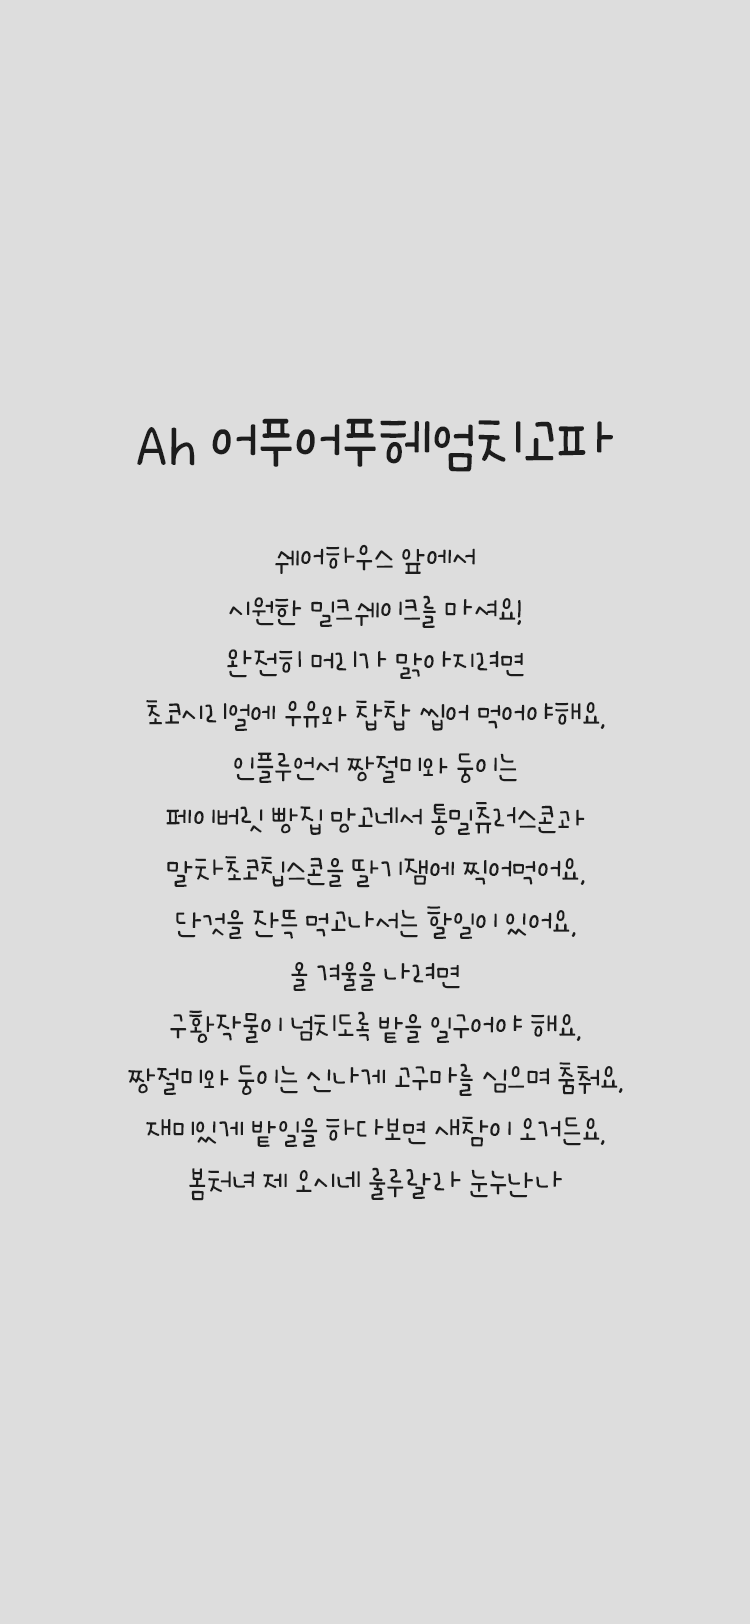 Ah 어푸어푸헤엄치고파
쉐어하우스 앞에서
시원한 밀크쉐이크를 마셔요!
완전히 머리가 맑아지려면
초코시리얼에 우유와 찹찹 씹어 먹어야해요.
인플루언서 짱절미와 둥이는
페이버릿 빵집 망고네서 통밀츄러스콘과
말차초코칩스콘을 딸기잼에 찍어먹어요.
단것을 잔뜩 먹고나서는 할일이 있어요.
올 겨울을 나려면
구황작물이 넘치도록 밭을 일구어야 해요.
짱절미와 둥이는 신나게 고구마를 심으며 춤춰요.
재미있게 밭일을 하다보면 새참이 오거든요.
봄처녀 제 오시네 룰루랄라 눈누난나